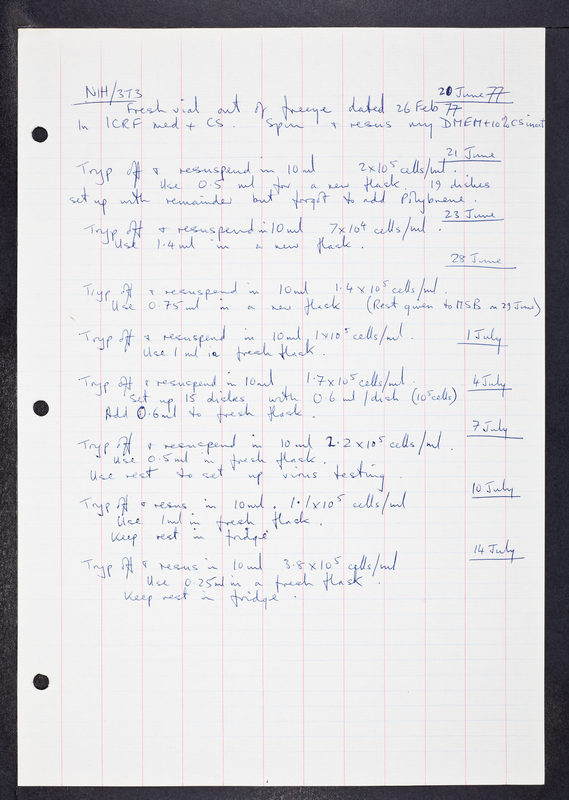 NIH/3T3 20 June 77
Fresh vial out of freeze dated 26 Feb 77
In ICRF med + CS. Spin + resus in my DMEM+10%CS inact
21 June
Tryp off + resuspend in 10 ml 2x10⁵ cells/ml.
Use 0.5 ml for a new flask. 19 dishes
set up with remainder but forgot to add Polybrene.
23 June
Tryp off + resuspend in 10 ml 7x10⁴ cells/ml.
Use 1.4 ml in a new flask.
28 June
Tryp off + resuspend in 10 ml 1.4 x 10⁵ cells/ml.
Use 0.75 ml in a new flask (Rest given to MSB on 29 June)
Tryp off + resuspend in 10 ml 1x10⁵ cells/ml. 1 July
Use 1 ml in fresh flask.
Tryp off + resuspend in 10 ml 1.7x10⁵ cells/ml. 4 July
Set up 15 dishes with 0.6 ml/dish (10⁵ cells)
Add 0.6 ml to fresh flask.
7 July
Tryp off + resuspend in 10 ml 2.2 x10⁵ cells/ml.
Use 0.5 ml in fresh flask.
Use rest to set up virus testing.
10 July
Tryp off + resus in 10 ml. 1.1x10⁵ cells/ml
Use 1 ml in fresh flask.
Keep rest in fridge
14 July
Tryp off + resus in 10 ml 3.8 x 10⁵ cells/ml
Use 0.25 ml in a fresh flask.
Keep rest in fridge.